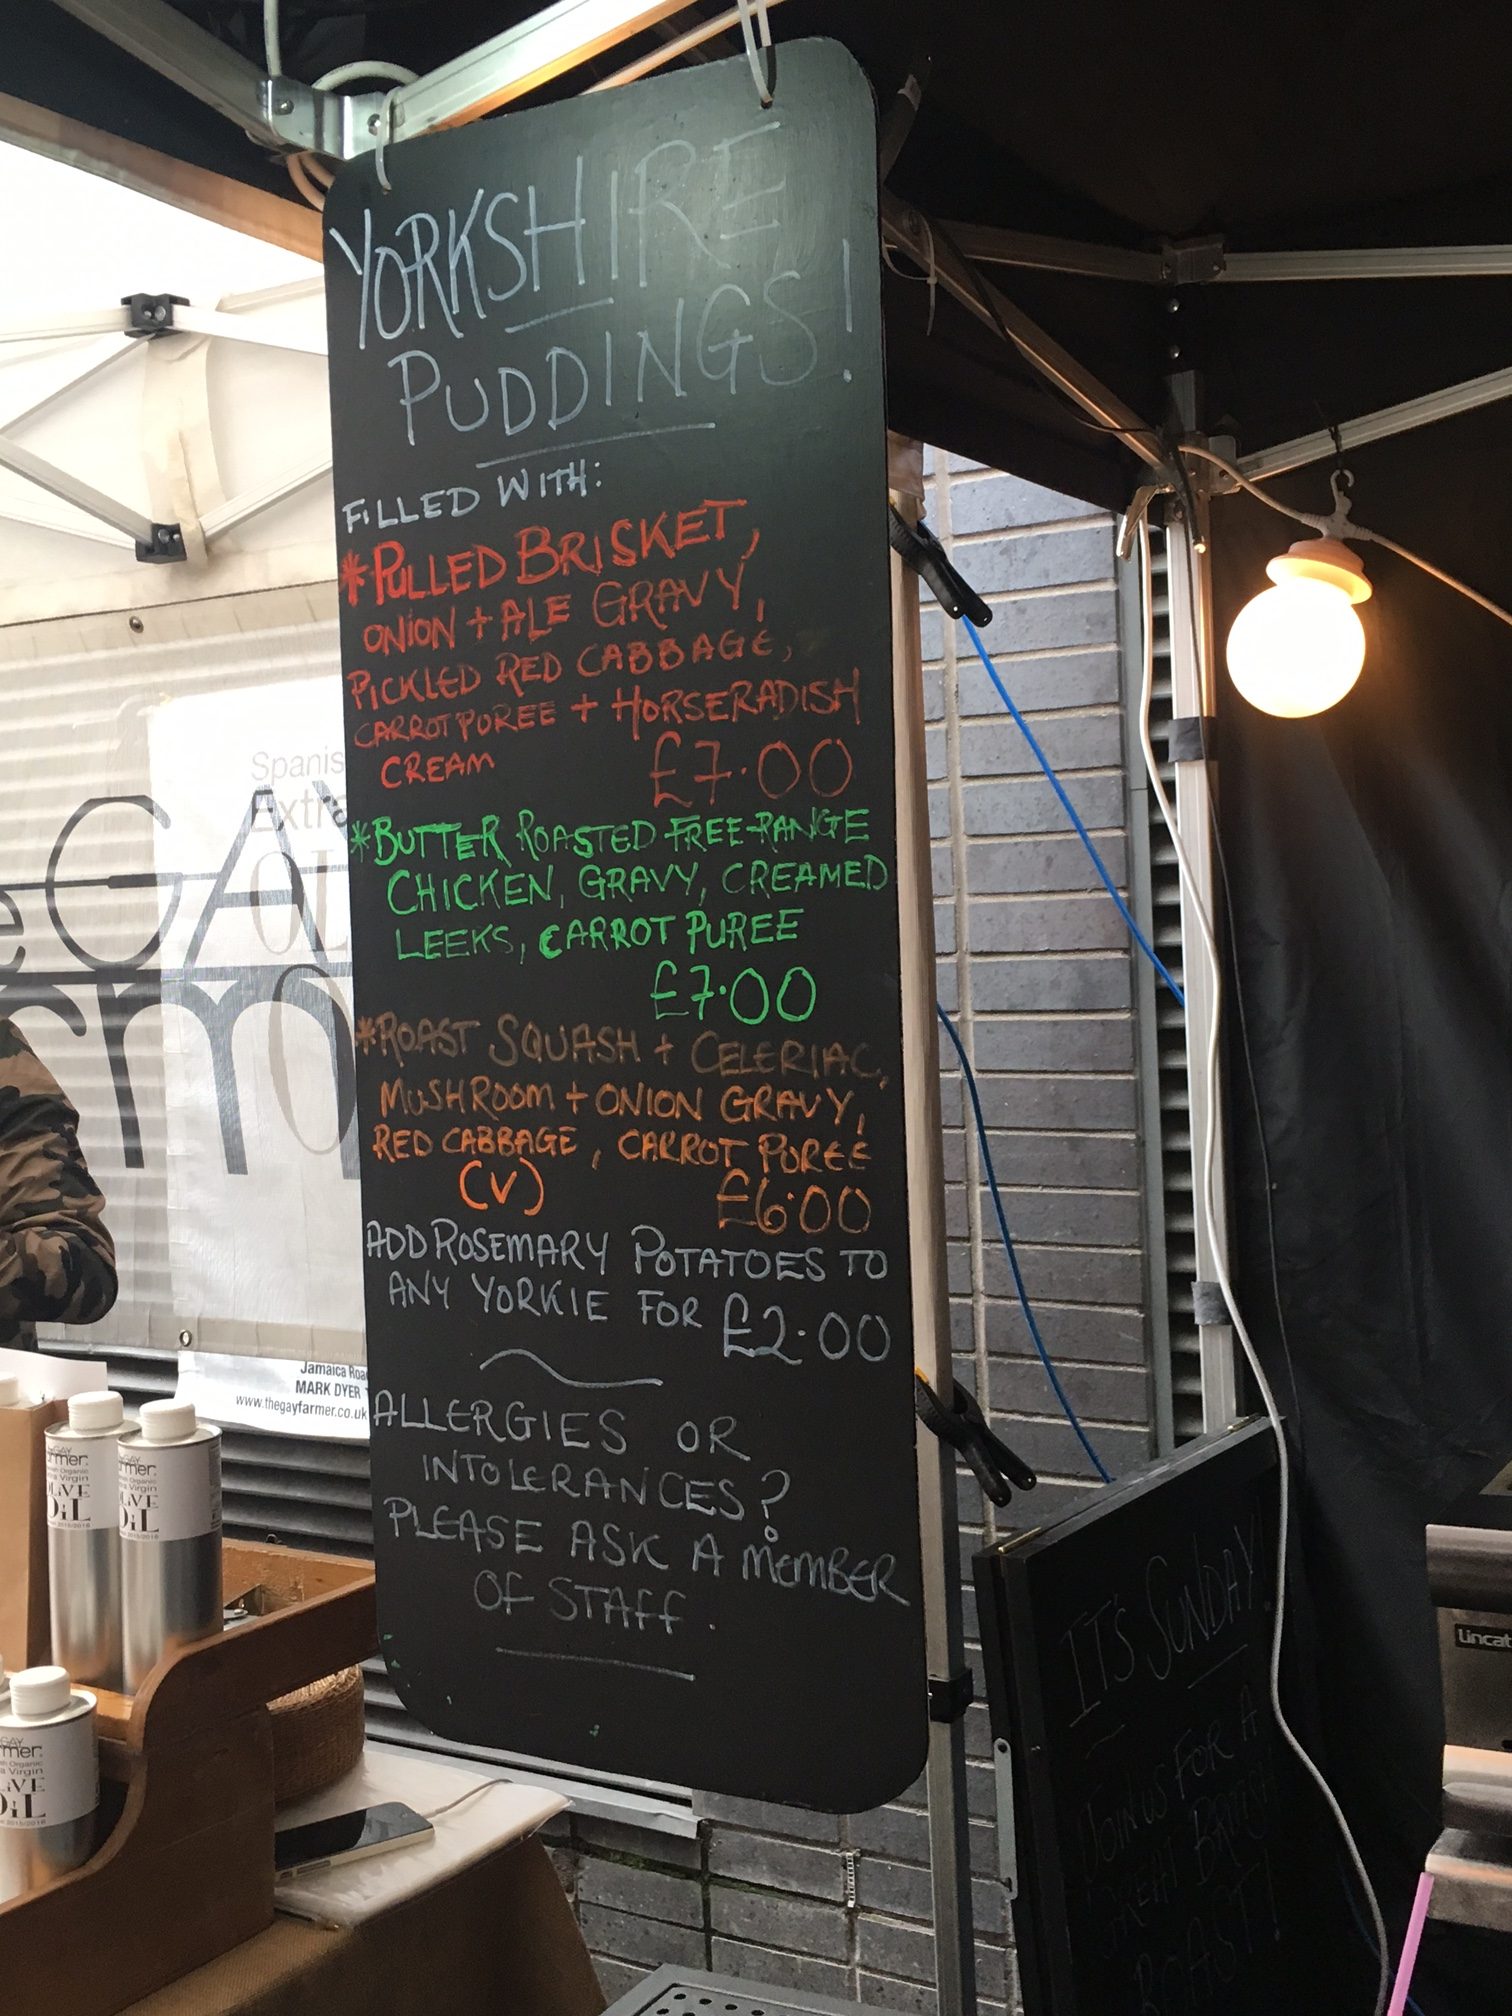 YORKSHIRE
PUDDINGS!
FILLED WITH:
*PULLED BRISKET,
ONION + ALE GRAVY,
PICKLED RED CABBAGE,
CARROT PUREE + HORSERADISH
CREAM £7.00
*BUTTER ROASTED FREE-RANGE
CHICKEN, GRAVY, CREAMED
LEEKS, CARROT PUREE
£7.00
*ROAST SQUASH + CELERIAC,
MUSHROOM + ONION GRAVY,
RED CABBAGE, CARROT PUREE
(V) £6.00
ADD ROSEMARY POTATOES TO
ANY YORKIE FOR £2.00
ALLERGIES OR
INTOLERANCES?
PLEASE ASK A MEMBER
OF STAFF.
IT'S SUNDAY!
JOIN US FOR A
GREAT BRITISH
ROAST!
Spanis
Extra
OL
O
e GAY
rm
Jamaica Roa
MARK DYER
www.thegayfarmer.co.uk
GAY
armer.
Organic
Virgin
OLIVE
OiL
2015/2016
Lincat